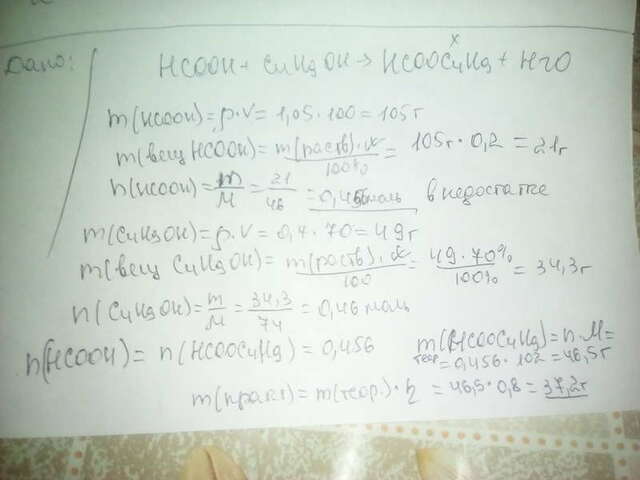 Дано:
x
HCOOH + C4H9OH → HCOOC4H9 + H2O
m(HCOOH) = ρ·V = 1,05·100 = 105г
m(вещ HCOOH) = m(раств)·α / 100% = 105г·0,2 = 21г
n(HCOOH) = m/M = 21/46 = 0,456моль в недостатке
m(C4H9OH) = ρ·V = 0,7·70 = 49г
m(вещ C4H9OH) = m(раств)·α / 100 = 49·70% / 100% = 34,3г
n(C4H9OH) = m/M = 34,3/74 = 0,46 моль
n(HCOOH) = n(HCOOC4H9) = 0,456
m(HCOOC4H9) = n·M =
теор = 0,456·102 = 46,5г
m(практ) = m(теор.)·η = 46,5·0,8 = 37,2г